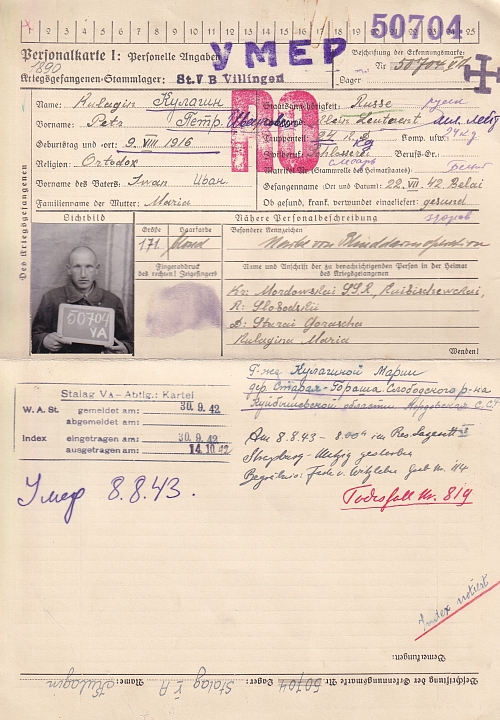 1 2 3 4 5 6 7 8 9 10 11 12 13 14 15 16 17 18 19 20 21 22 23 24 25
50704
Personalkarte I: Personelle Angaben
УМЕР
Beschriftung der Erkennungsmarke:
1890
Nr. 50704 VA
Kriegsgefangenen-Stammlager: St. V B Villingen
Lager:
Des Kriegsgefangenen
Name: Kulagin Кулагин
Vorname: Petr Петр Иванович
Geburtstag und -ort: 9. VIII 1916
Religion: Ortodox
Vorname des Vaters: Iwan Иван.
Familienname der Mutter: Maria
Staatsangehörigkeit: Russe
Dienstgrad: Leutenant
Truppenteil: Komp. usw.:
Zivilberuf: Schlosser Berufs-Gr.:
слесарь
Matrikel Nr. (Stammrolle des Heimatstaates):
Gefangennahme (Ort und Datum): 22. VII. 42 Belai
Ob gesund, krank, verwundet eingeliefert: gesund
здоров
Lichtbild
50704
VA
Größe Haarfarbe
171. blond
Fingerabdruck
des rechten! Zeigefingers
Nähere Personalbeschreibung
Besondere Kennzeichen
Narbe von Blinddarmoperation
Name und Anschrift der zu benachrichtigenden Person in der Heimat
des Kriegsgefangenen
Kr: Mordowskai S.S.R,
R: Slobodskii
D: Starai Gorascha
Kulagina Maria
Wenden!
Stalag VA – Abtlg.: Kartei
W. A. St. gemeldet am: 30. 9. 42
abgemeldet am:
Index eingetragen am: 30. 9. 42
ausgetragen am: 14. 10. 42
Г-жа Кулагиной Марии
дер. Старая-Гораша Слободского р-на
Куйбышевской области Мордовская С.С.Р
Am 8.8.43 - im Res Lazarett
gestorben
Умер 8.8.43.
Todesfall Nr. 819
Index notiert
Bemerkungen:
Beschriftung der Erkennungsmarke Nr. 50704 Lager: Stalag V A Name: Kulagin